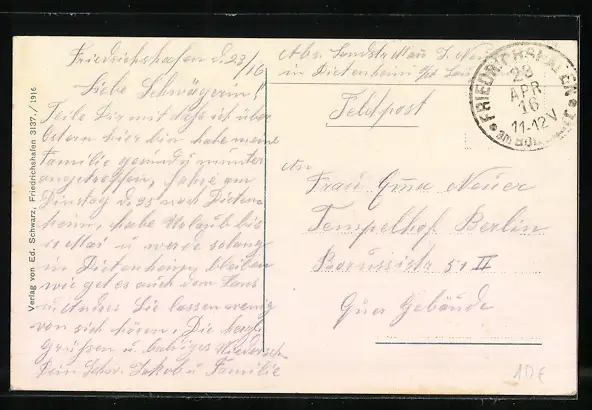 Friedrichshafen d. 23/16
Liebe Schwägerin!
Teile Dir mit daß ich über
Ostern hier bin habe meine
Familie gesund u. munter
angetroffen, fahre am
Dienstag d. 25 nach Dieten-
heim, habe Urlaub bis
Mai u werde solang
in Dietenheim bleiben
wie get es auch dem Hans
u Andres Sie lassen wenig
von sich hören. Die herzl.
Grüßen u. baldiges Wiederseh
Dein Schw. Jakob u Familie
Abs. Landstr. Mau J. Neuer
in Dietenheim
Feldpost
An
Frau Emma Neuer
Tempelhof Berlin
Borussiastr 51 II
Quer Gebäude
FRIEDRICHSHAFEN
23
APR
16
11-12 V
Verlag von Ed. Schwarz, Friedrichshafen 3137./1916
10€